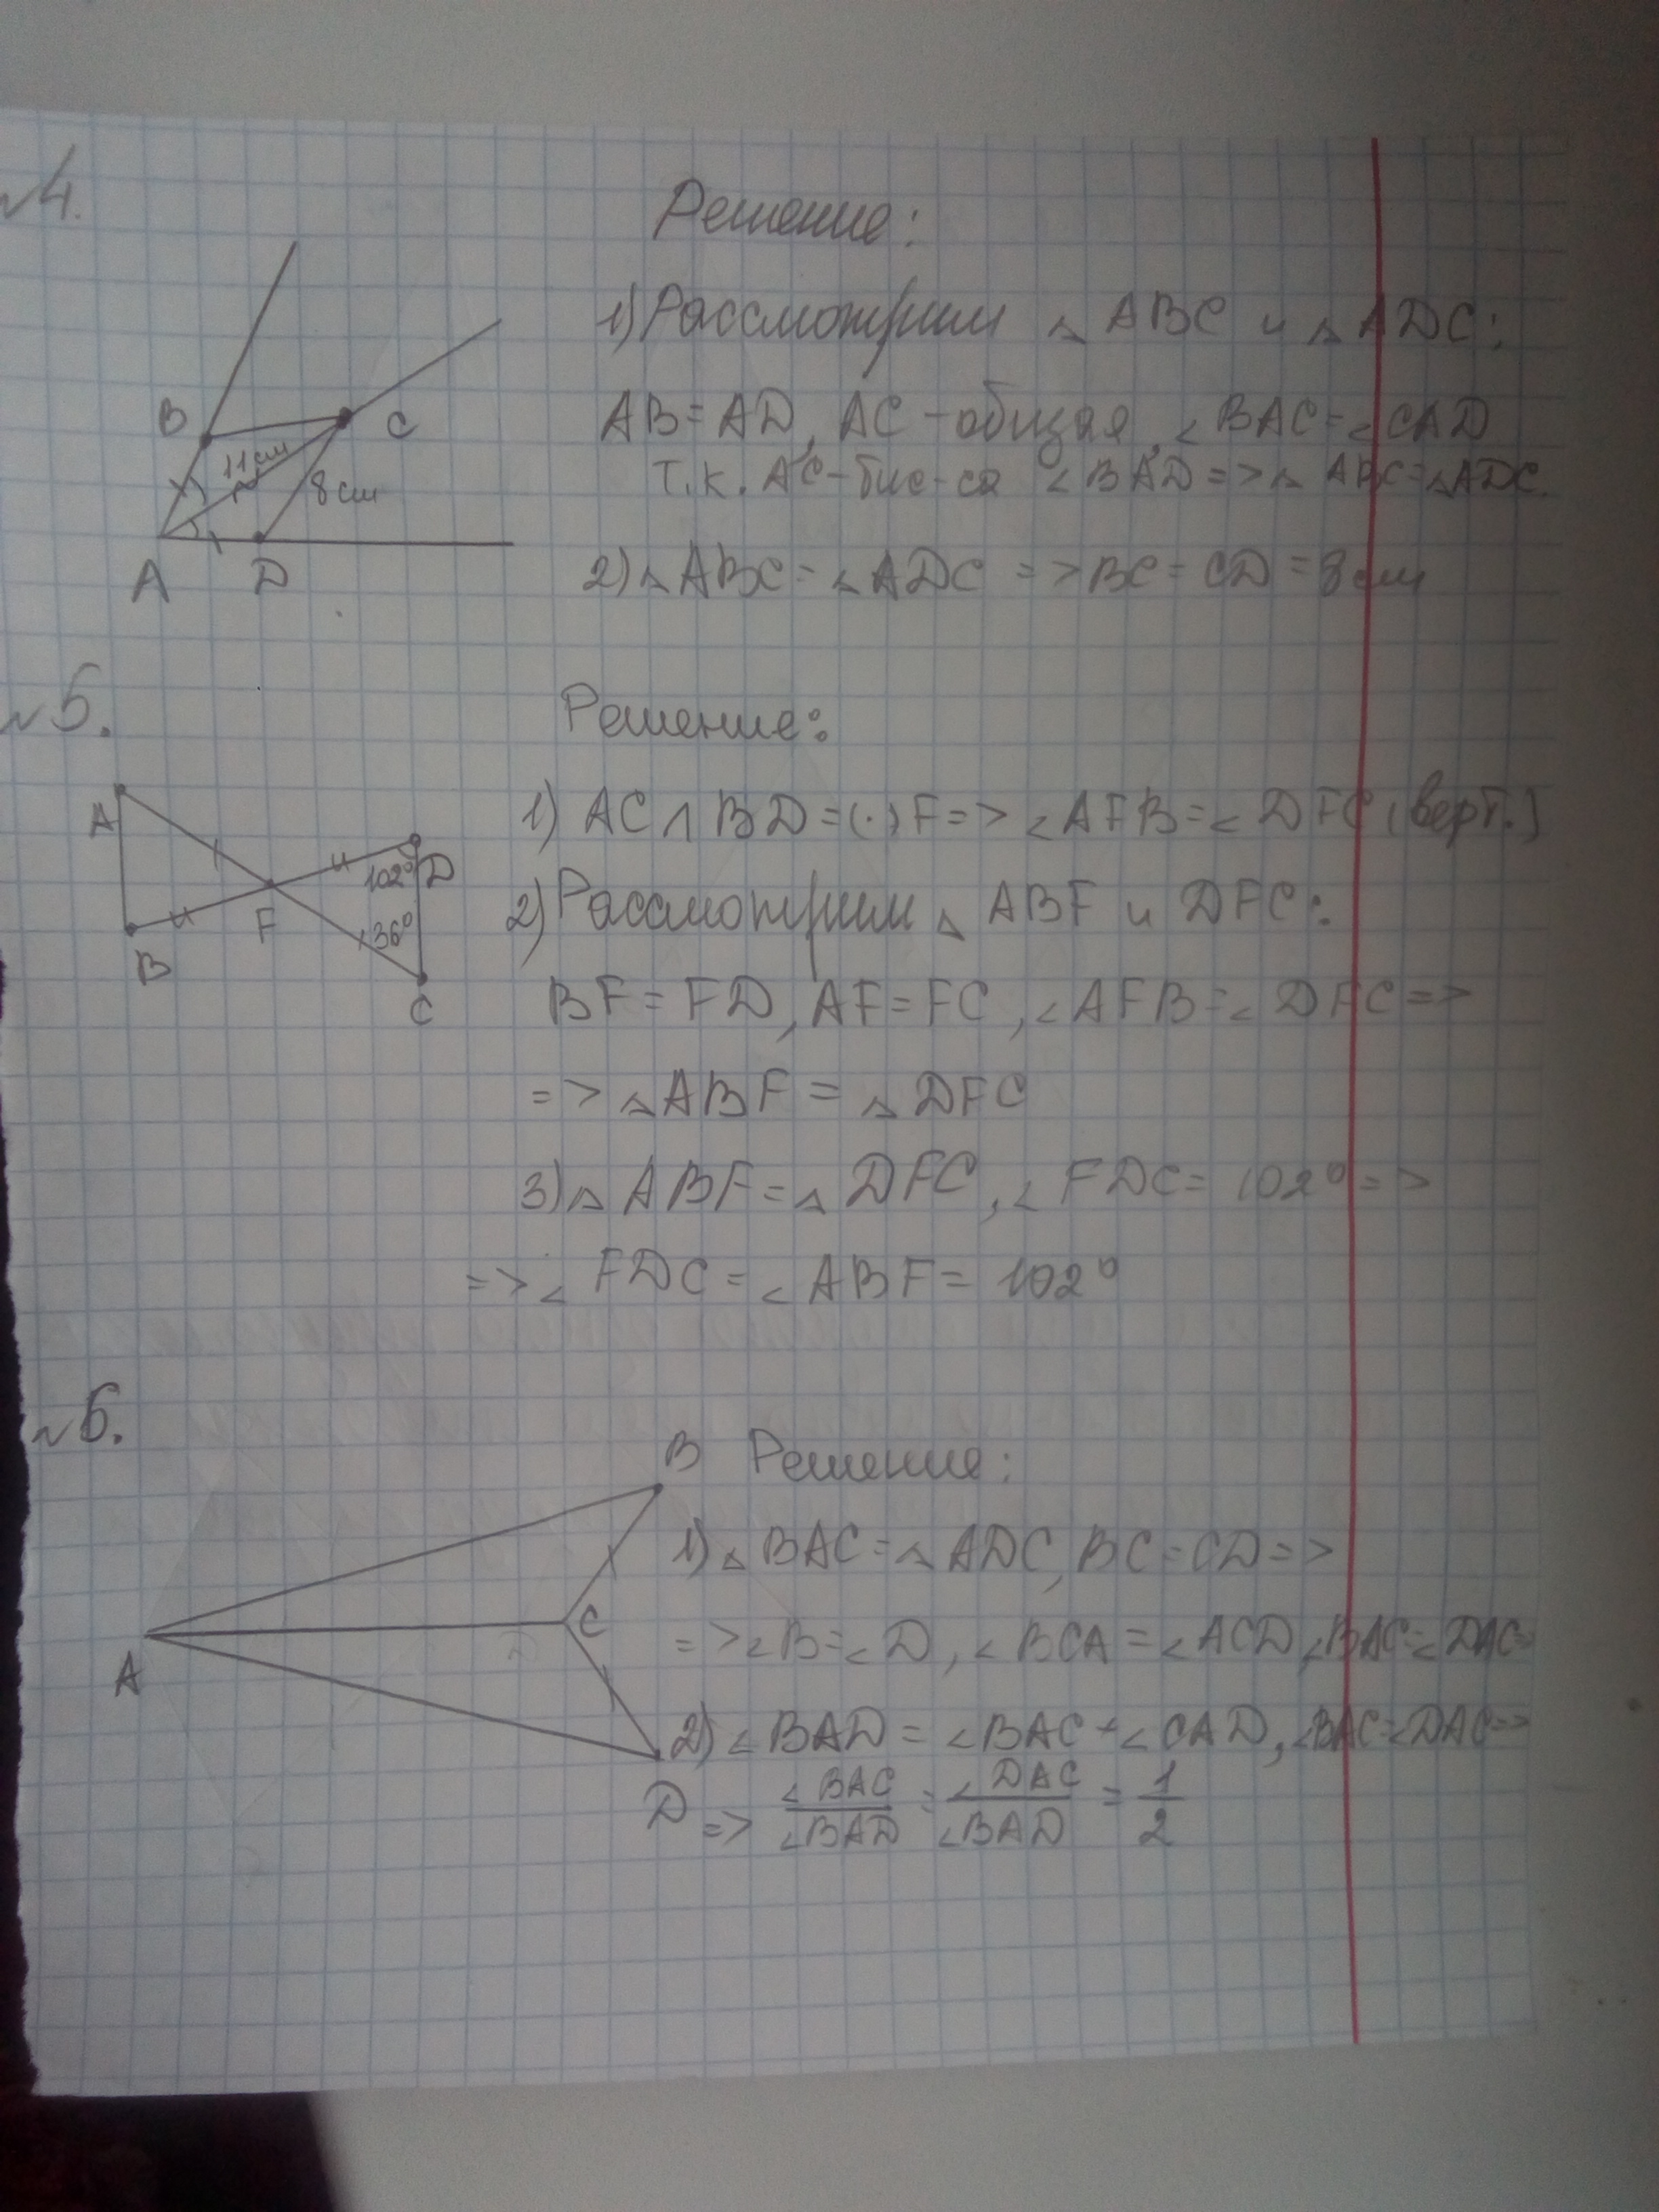 №4.
Решение:
1) Рассмотрим △ ABC и △ ADC:
AB = AD, AC – общая, ∠BAC = ∠CAD
т.к. AC – бис-са ∠BAD => △ ABC = △ADC.
2) △ABC = △ADC => BC = CD = 8 см
B
C
11 см
8 см
A
D
№5.
Решение:
1) AC ∩ BD = (·) F => ∠AFB = ∠DFC (верт.)
2) Рассмотрим △ ABF и DFC:
BF = FD, AF = FC, ∠AFB = ∠DFC =>
=> △ABF = △DFC
3) △ABF = △DFC, ∠FDC = 102° =>
=> ∠FDC = ∠ABF = 102°
A
102°
D
F
36°
B
C
№6.
B
Решение:
1) △BAC = △ADC, BC = CD =>
=> ∠B = ∠D, ∠BCA = ∠ACD, ∠BAC = ∠DAC
2) ∠BAD = ∠BAC + ∠CAD, ∠BAC = ∠DAC =>
=> ∠BAC/∠BAD = ∠DAC/∠BAD = 1/2
C
A
D